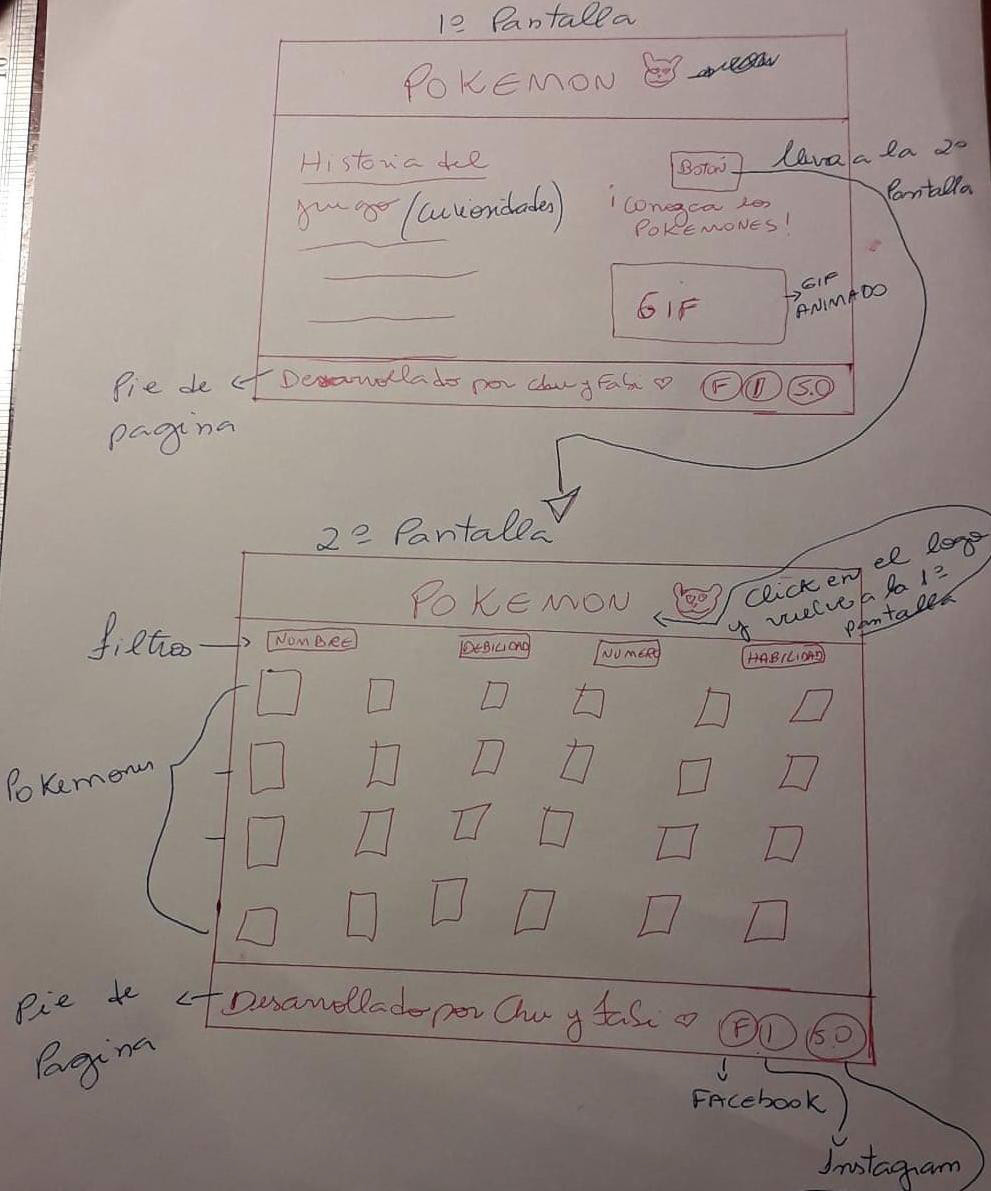 1º Pantalla
POKEMON
Historia del
juego (curiosidades)
Botón
lleva a la 2º
Pantalla
¡Conozca los
POKEMONES!
GIF
GIF
ANIMADO
Pie de
pagina
Desarrollado por Chu y Fabi ♡
F I S.O
2º Pantalla
POKEMON
Click en el logo
y vuelve a la 1º
pantalla
filtros
NOMBRE DEBILIDAD NUMERO HABILIDAD
Pokemones
Pie de
Pagina
Desarrollado por Chu y Fabi ♡
F I S.O
FACEbook
Instagram